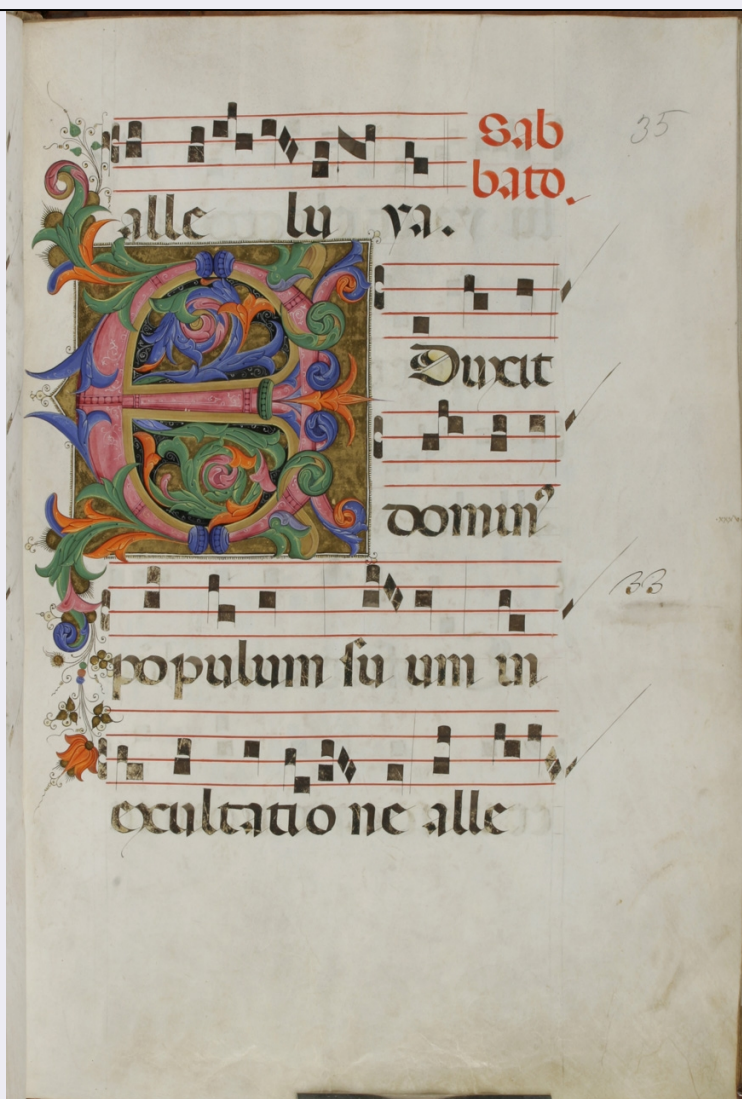 Sab
35
bato.
alle lu ya.
E
Duxit
dominꝰ
33
populum su um in
exultatio ne alle